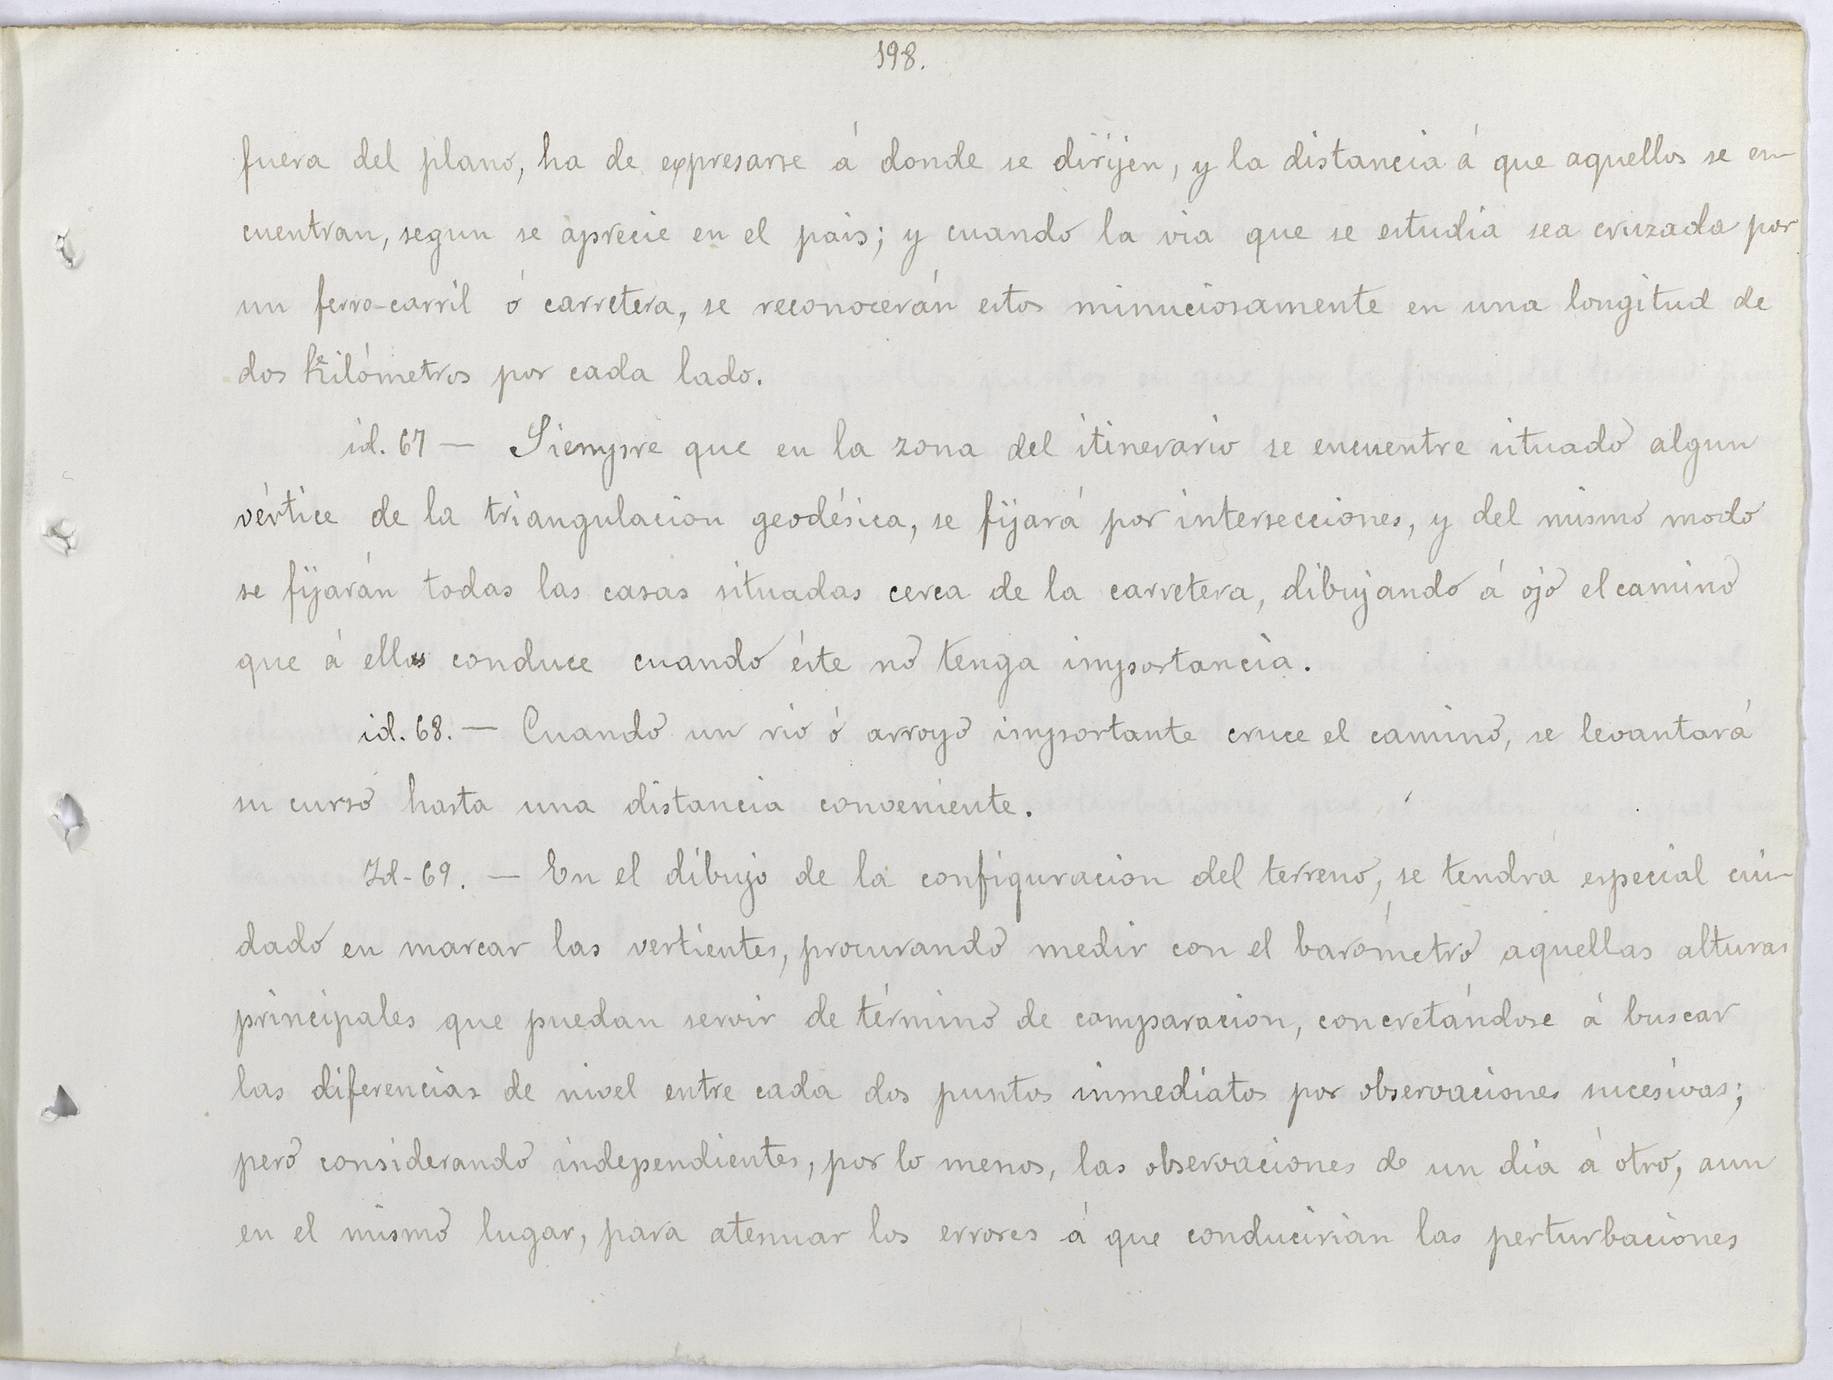 198.
fuera del plano, ha de expresarse á donde se dirijen, y la distancia á que aquellos se en-
cuentran, segun se aprecie en el pais; y cuando la via que se estudia sea cruzada por
un ferro-carril ó carretera, se reconocerán estos minuciosamente en una longitud de
dos kilómetros por cada lado.
id. 67 — Siempre que en la zona del itinerario se encuentre situado algun
vértice de la triangulacion geodésica, se fijará por intersecciones, y del mismo modo
se fijarán todas las casas situadas cerca de la carretera, dibujando á ojo el camino
que á ellas conduce cuando éste no tenga importancia.
id. 68. — Cuando un rio ó arroyo importante cruce el camino, se levantará
su curso hasta una distancia conveniente.
Id-69. — En el dibujo de la configuracion del terreno, se tendrá especial cui-
dado en marcar las vertientes, procurando medir con el barómetro aquellas alturas
principales que puedan servir de término de comparacion, concretándose á buscar
las diferencias de nivel entre cada dos puntos inmediatos por observaciones sucesivas;
pero considerando independientes, por lo menos, las observaciones de un dia á otro, aun
en el mismo lugar, para atenuar los errores á que conducirian las perturbaciones